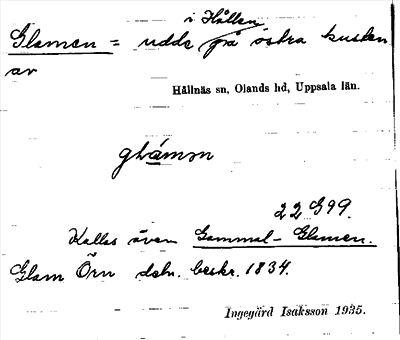 i Hållen
Glamen = udde på östra kusten
av
Hållnäs sn, Olands hd, Uppsala län.
glámǝn
22 G99.
Kallas även Gammal-Glamen.
Glam Örn dekr. beskr. 1834.
Ingegärd Isaksson 1935.